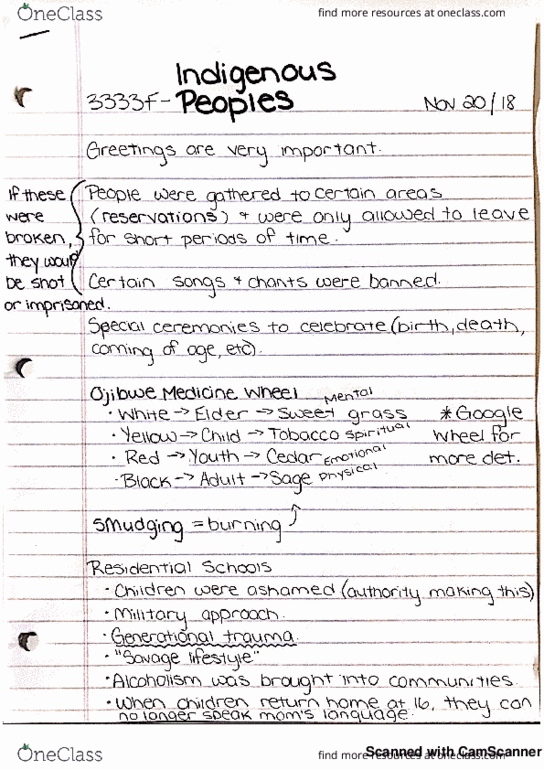 OneClass
find more resources at oneclass.com
Indigenous
3333F- Peoples
Nov 20/18
Greetings are very important.
If these
were
broken,
they would
be shot
or imprisoned.
People were gathered to certain areas
(reservations) + were only allowed to leave
for short periods of time.
Certain songs + chants were banned.
Special ceremonies to celebrate (birth, death,
coming of age, etc).
Ojibwe Medicine Wheel
· White → Elder → Sweet grass Mental
· Yellow → Child → Tobacco Spiritual
· Red → Youth → Cedar Emotional
· Black → Adult → Sage Physical
* Google
Wheel for
more det.
Smudging = burning
Residential Schools
· Children were ashamed (authority making this)
· Military approach.
· Generational trauma.
· "Savage lifestyle"
· Alcoholism was brought into communities.
· When children return home at 16, they can
no longer speak mom's language.
OneClass
find more resources at oneclass.com
Scanned with CamScanner